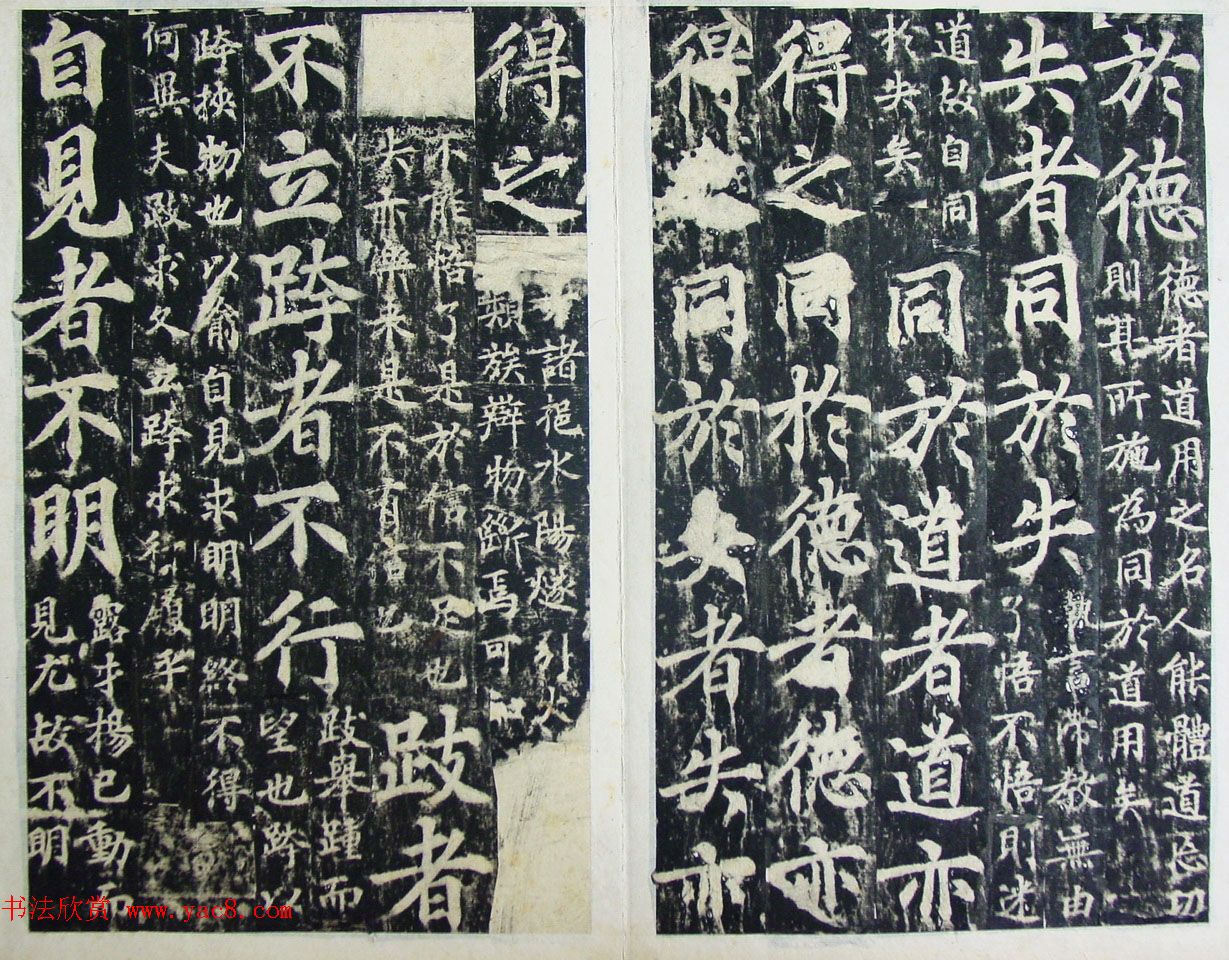 於德
德者道用之名人能體道忘功
則其所施為同於道用矣
失者同於失
執言滯教無由
了悟不悟則迷
道故自同
於失矣
同於道者道亦
得之同於德者德亦
得之同於失者失亦
得之
諸挹水陽燧引火
類族辯物斷焉可知
不能悟了是於信不足也
亦来是不有信也
跂者
不立跨者不行
跂舉踵而
望也跨以
跨挾物也以喻自見求明明終不得
何異夫跂求久立跨求行履乎
自見者不明
露才揚己動而
見尤故不明
书法欣赏 www.yac8.com